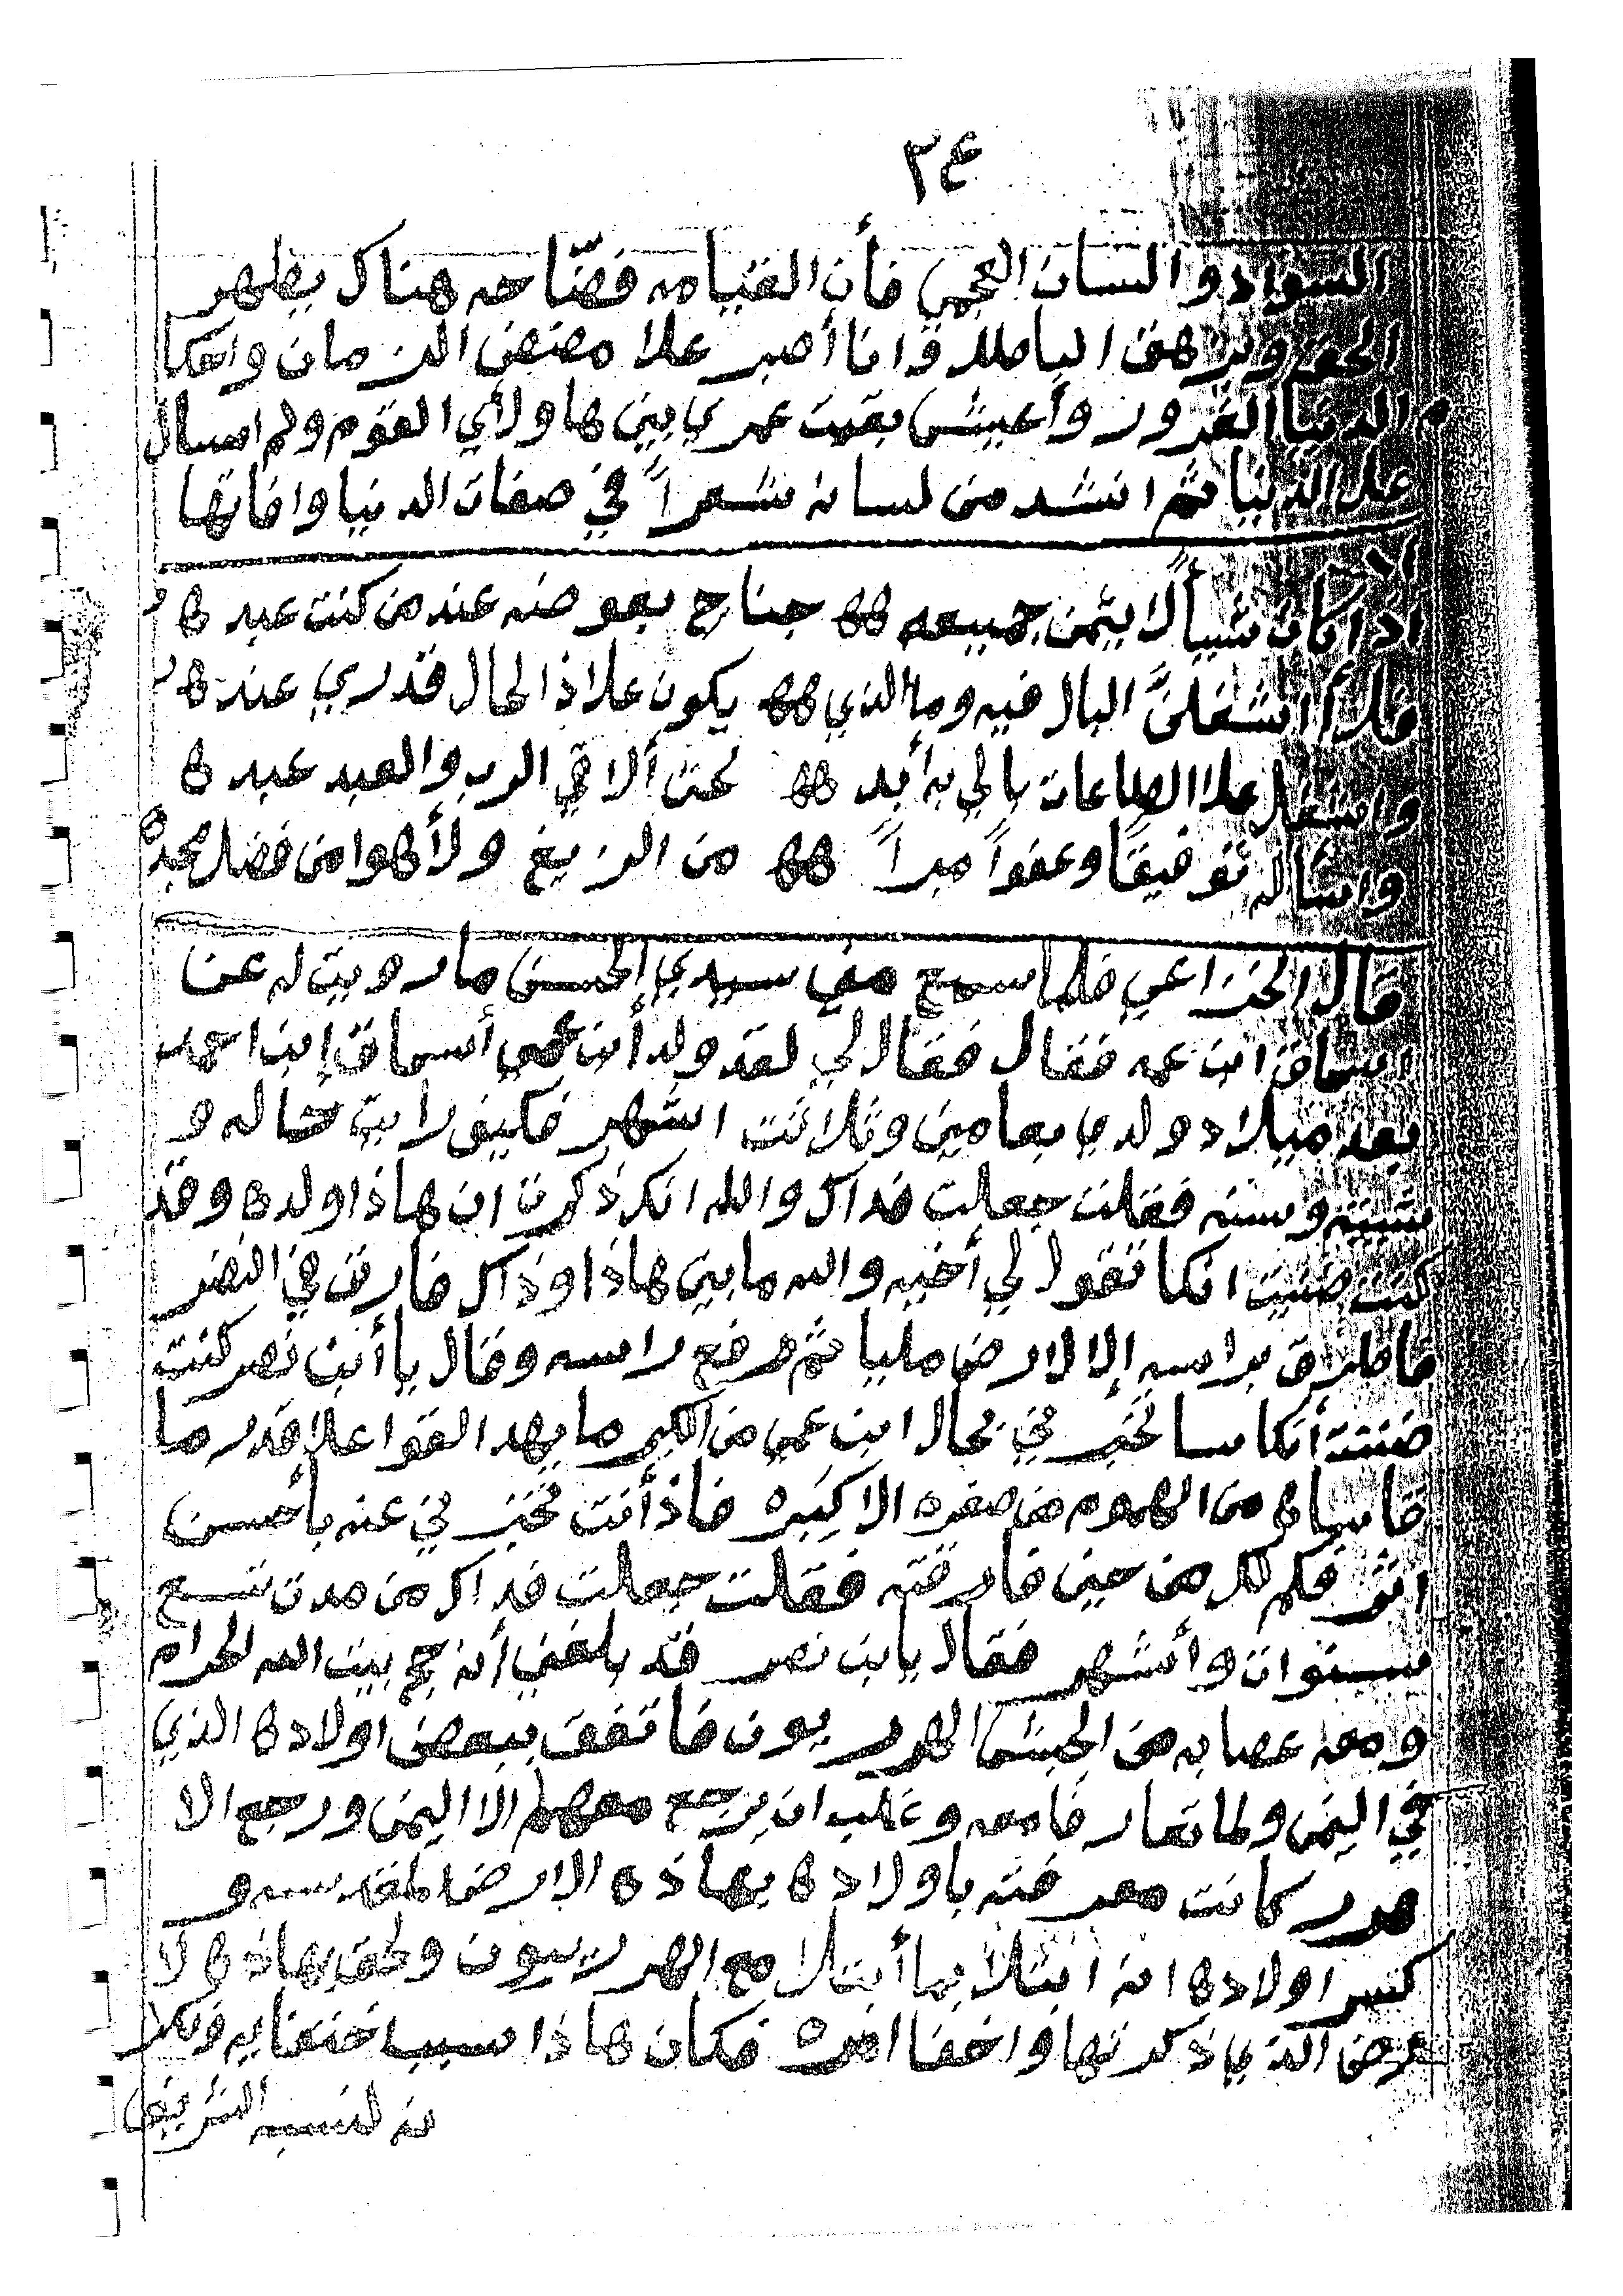 ٣٤
السواد والسان العجمي فأن القيامه فضّاحه هناك يظهر
الحق ويزهق الباطل وانا أصبر علا مضض الزمان وانكا
الدنيا الغرور وأعيش بقيت عمري بين هاولأي القوم ولم اسال
عل الدنيا ثم انشد من لسانه شعراً في صفات الدنيا وافاتها
اذا كان شيأ لا يثمن جميعه هه جناح بعوضه عند من كنت عبده
فلا أشغلنَّ البال فيه وما الذي هه يكون علا ذا الحال قدري عنده
واشغل علا الطاعات بالي به أبد هه لحتى ألاقي الرب والعبد عبده
واسأله توفيقاً وعفواً مبراً هه من الزيغ ولألهوا من فضل مجده
قال الخزاعي فلما سمع مني سيدي الحسن ما رويت له عن
اسماق ابن عمه فقال فقال لي لقد ولد أبن عمي أسماق إبن احمد
بعد ميلاد ولدي بعامين وثلاثت اشهر فكيف رايت حاله و
شيبته وسنه فقلت جعلت فداك والله انك ذكرت ان هاذا ولده وقد
كنت ضنيت انكا تقول لي أخيه والله ما بين هاذا وذاك فارق في النضر
فاطرق براسه إلا الارض مليا ثم رفع راسه وقال يا أبن نصر كنت
ضننت أنكا سا تخبر في بحال ابن عمي من الكبر ما يهد القوا علا قدر ما
قاساه من الهموم من صغره الا كبره فاذ أنت تخبر ني عنه بأحسن
اثر فكم لك من حين فارقته فقلت جعلت فداك من مدت تسع
سنوات وأشهر فقال يابن نصر قد بلغني أنه حج بيت الله الحرام
ومعه عصابه من الحبشا الهرريون فاتفق ببعض اولاده الذي
في اليمن ولما تعارفا معه وغلب ان يرجع معهم الا اليمن ورجع الا
هرر كانت معرفته باولاده بهاذه الارض المقدسه و
كسر اولاده انه ابتلا بما أبتلا مع الهرريون ولحق بهاذه لا
رض الذي ذكرتها واخفا امره فكان هاذا سبب اختفايه ونكر
نه لنسبه الشريف